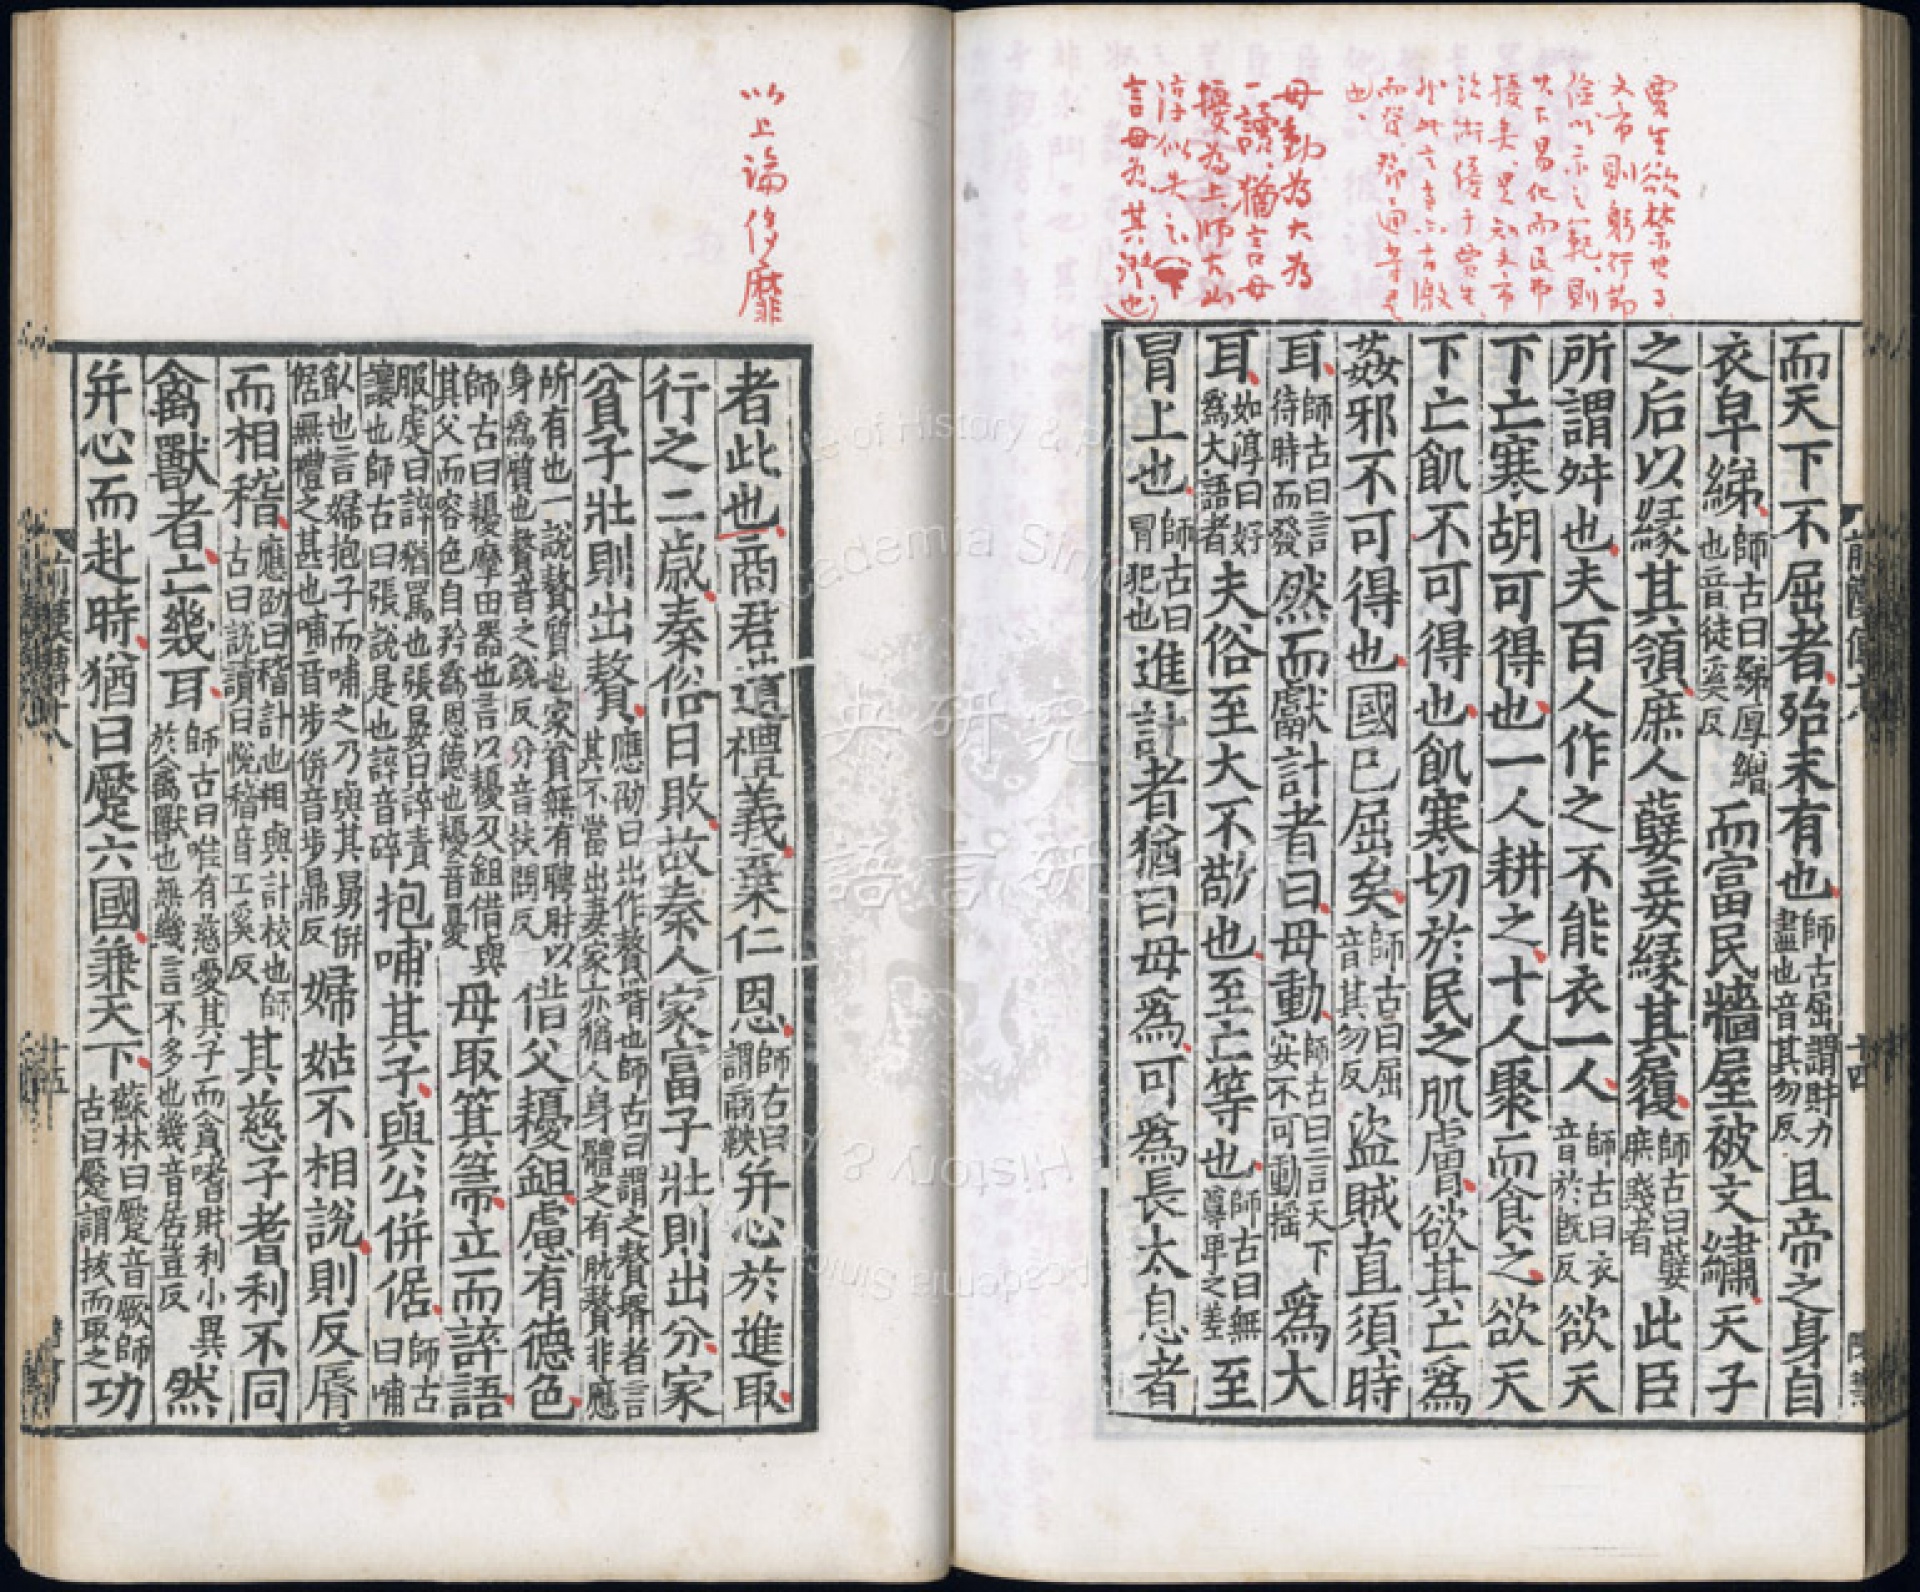 賈生欲禁世之
文帝則躬行節
儉以示之範、則
其下易化而民弗
擾矣、是知文帝
治術優于賈生、
也、
毋動為大為
一讀、猶言毋
擾為上、師古如
淳似失之
言毋為其激也
前漢傳十八
十四
而天下不屈者殆未有也師古屈謂財力盡也音其勿反且帝之身自
衣皁綈師古曰綈厚繒也音徒奚反而富民牆屋被文繡天子
之后以緣其領庶人孽妾緣其履師古曰孽庶賤者此臣
所謂舛也夫百人作之不能衣一人師古曰衣音於旣反欲天
下亡寒胡可得也一人耕之十人聚而食之欲天
下亡飢不可得也飢寒切於民之肌膚欲其亡爲
姦邪不可得也國已屈矣師古曰屈音其勿反盜賊直須時
耳師古曰言待時而發然而獻計者曰毋動師古曰言天下安不可動搖爲大
耳如淳曰好爲大語者夫俗至大不敬也至亡等也師古曰無尊卑之差至
冒上也師古曰冒犯也進計者猶曰毋爲可爲長太息者
以上論侈靡
者此也商君遺禮義棄仁恩師古曰謂商鞅并心於進取
行之二歲秦俗日敗故秦人家富子壯則出分家
貧子壯則出贅應劭曰出作贅壻也師古曰謂之贅壻者言其不當出妻家亦猶人身體之有肬贅非應
所有也一說贅質也家貧無有聘財以身爲質也贅音之銳反分音扶問反借父耰鉏慮有德色
師古曰耰摩田器也言以耰及鉏借與其父而容色自矜爲恩德也耰音憂母取箕箒立而誶語
服虔曰誶猶罵也張晏曰誶責讓也師古曰張說是也誶音碎抱哺其子與公併倨師古曰哺
飤也言婦抱子而哺之乃與其舅併倨無禮之甚也哺音步併音步鼎反婦姑不相說則反脣
而相稽應劭曰稽計也相與計校也師古曰說讀曰悅稽音工奚反其慈子耆利不同
禽獸者亡幾耳師古曰唯有慈愛其子而貪嗜財利小異於禽獸也無幾言不多也幾音居豈反然
并心而赴時猶曰蹷六國兼天下蘇林曰蹷音厥師古曰蹷謂拔而取之功
前漢傳十八
十五